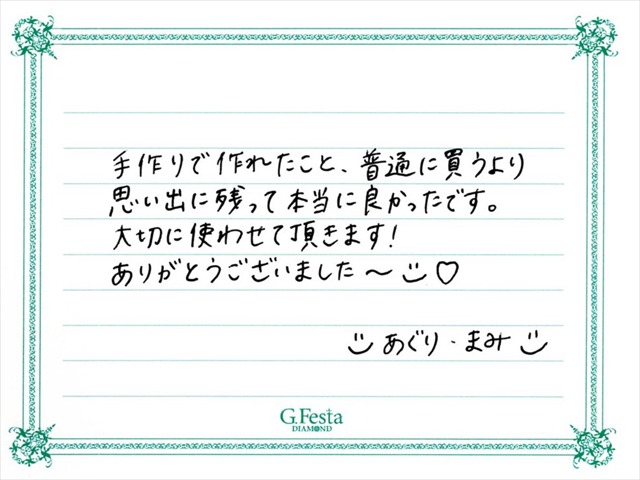 手作りで作れたこと、普通に買うより
思い出に残って本当に良かったです。
大切に使わせて頂きます!
ありがとうございました〜 ♡
あぐり・まみ
G.Festa
DIAMOND